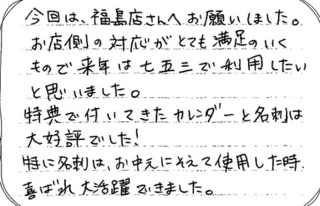 今回は、福島店さんへお願いしました。
お店側の対応がとても満足のいく
もので来年は七五三で利用したい
と思いました。
特典で付いてきたカレンダーと名刺は
大好評でした!
特に名刺は、お中元にそえて使用した時、
喜ばれ大活躍できました。